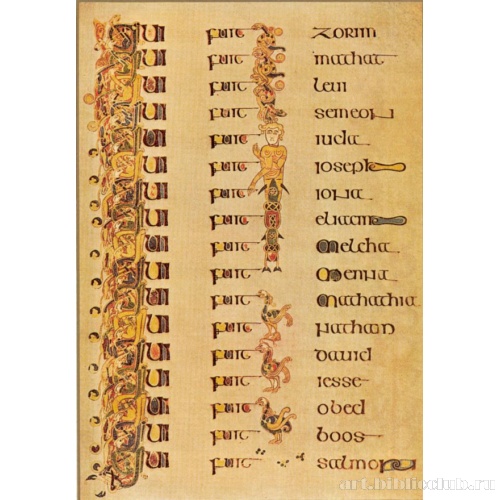 QUI fuit zorim
QUI fuit mathat
QUI fuit leui
QUI fuit semeon
QUI fuit iuda
QUI fuit ioseph
QUI fuit iona
QUI fuit eliacim
QUI fuit melcha
QUI fuit menna
QUI fuit mathathia
QUI fuit nathan
QUI fuit dauid
QUI fuit iesse
QUI fuit obed
QUI fuit boos
QUI fuit salmon
art.biblioclub.ru